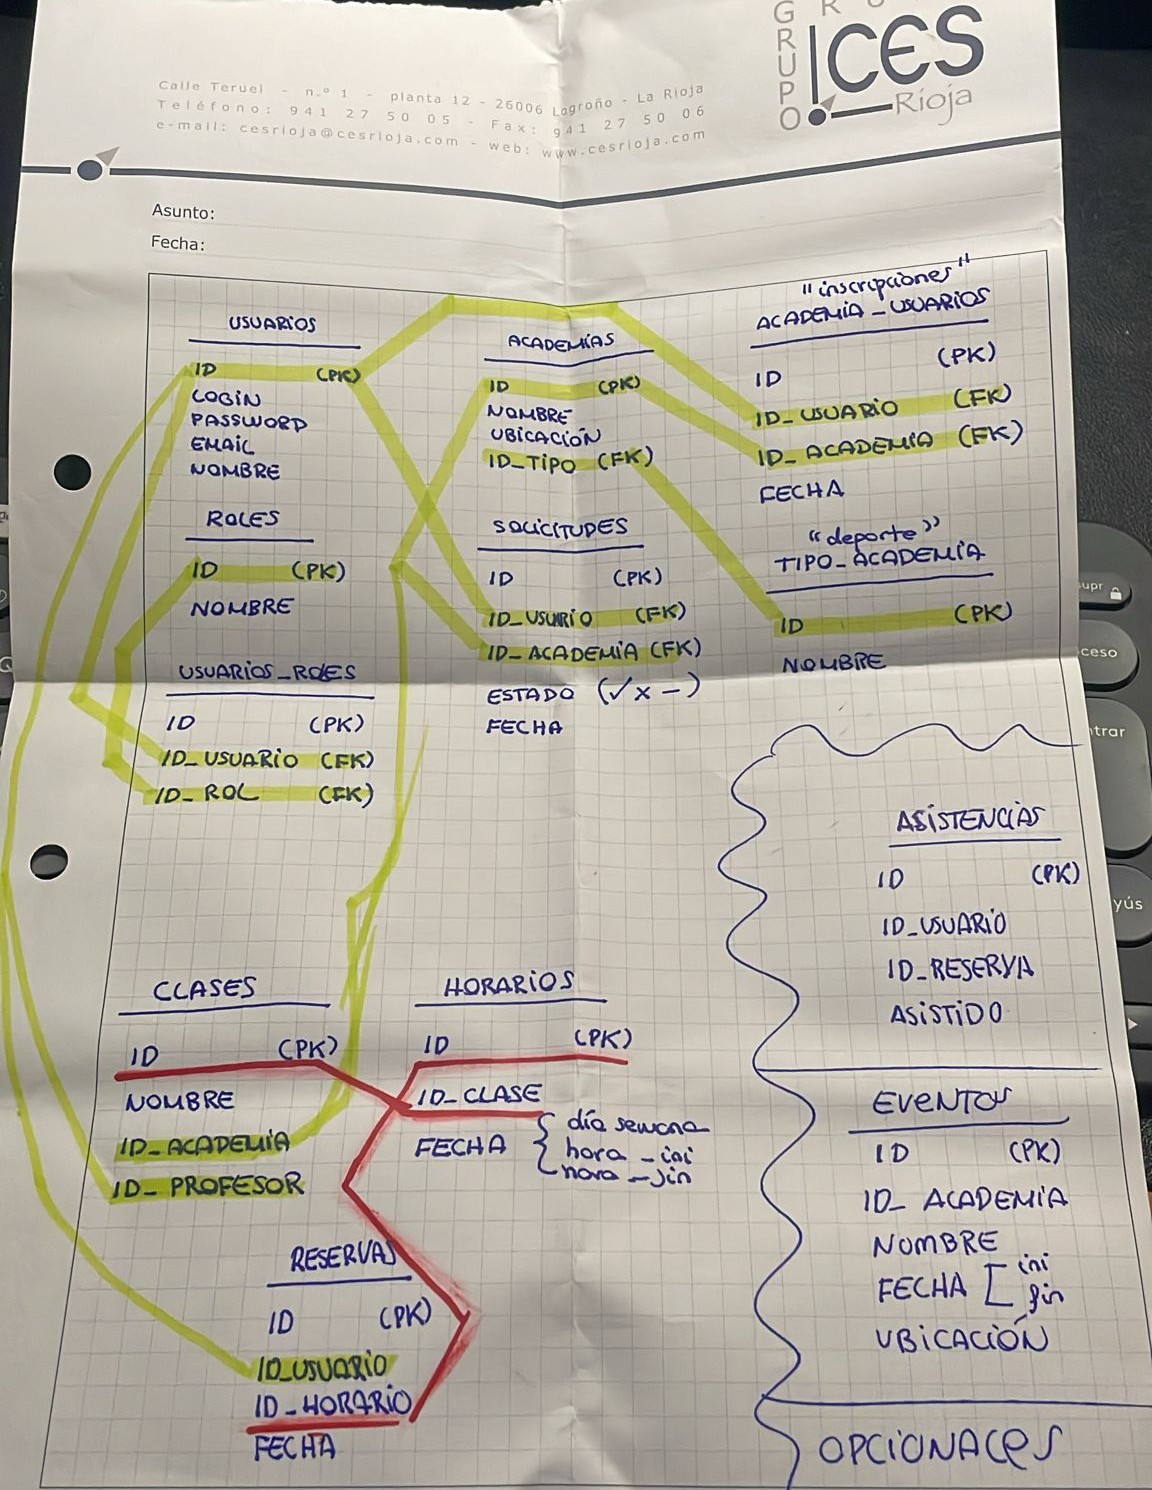 GRUPO
ICES
Rioja
Calle Teruel - n.º 1 - planta 12 - 26006 Logroño - La Rioja
Teléfono: 941 27 50 05 - Fax: 941 27 50 06
e-mail: cesrioja@cesrioja.com - web: www.cesrioja.com
Asunto:
Fecha:
USUARIOS
ID (PK)
LOGIN
PASSWORD
EMAIL
NOMBRE
ROLES
ID (PK)
NOMBRE
USUARIOS_ROLES
ID (PK)
ID_USUARIO (FK)
ID_ROL (FK)
ACADEMIAS
ID (PK)
NOMBRE
UBICACIÓN
ID_TIPO (FK)
SOLICITUDES
ID (PK)
ID_USURIO (FK)
ID_ACADEMIA (FK)
ESTADO (√ x -)
FECHA
"inscripciones"
ACADEMIA_USUARIOS
ID (PK)
ID_USUARIO (FK)
ID_ACADEMIA (FK)
FECHA
"deporte"
TIPO_ACADEMIA
ID (PK)
NOMBRE
CLASES
ID (PK)
NOMBRE
ID_ACADEMIA
ID_PROFESOR
HORARIOS
ID (PK)
ID_CLASE
FECHA { día semana
hora_ini
hora_fin
RESERVAS
ID (PK)
ID_USUARIO
ID_HORARIO
FECHA
ASISTENCIAS
ID (PK)
ID_USUARIO
ID_RESERVA
ASISTIDO
EVENTOS
ID (PK)
ID_ACADEMIA
NOMBRE
FECHA [ ini
fin
UBICACIÓN
OPCIONALES
supr
ceso
trar
yús